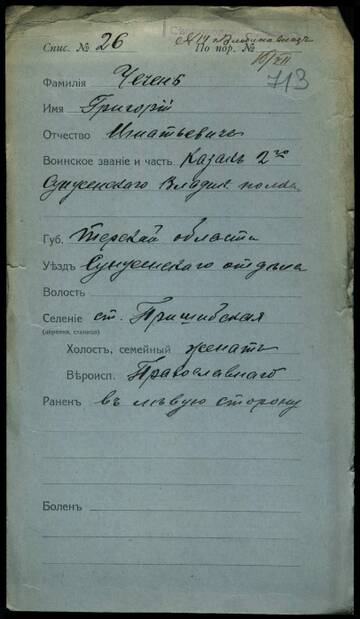 Спис. № 26 По пор. №
16/XII
713
Фамилія Чечень
Имя Григорій
Отчество Игнатьевичъ
Воинское званіе и часть Казакъ 2го
Сунженскаго Владик. полка
Губ. Терской области
Уѣздъ Сунженскаго отдѣла
Волость
Селеніе ст. Пришибская
(деревня, станица)
Холостъ, семейный женатъ
Вѣроисп. Православнаго
Раненъ въ лѣвую сторону
Боленъ